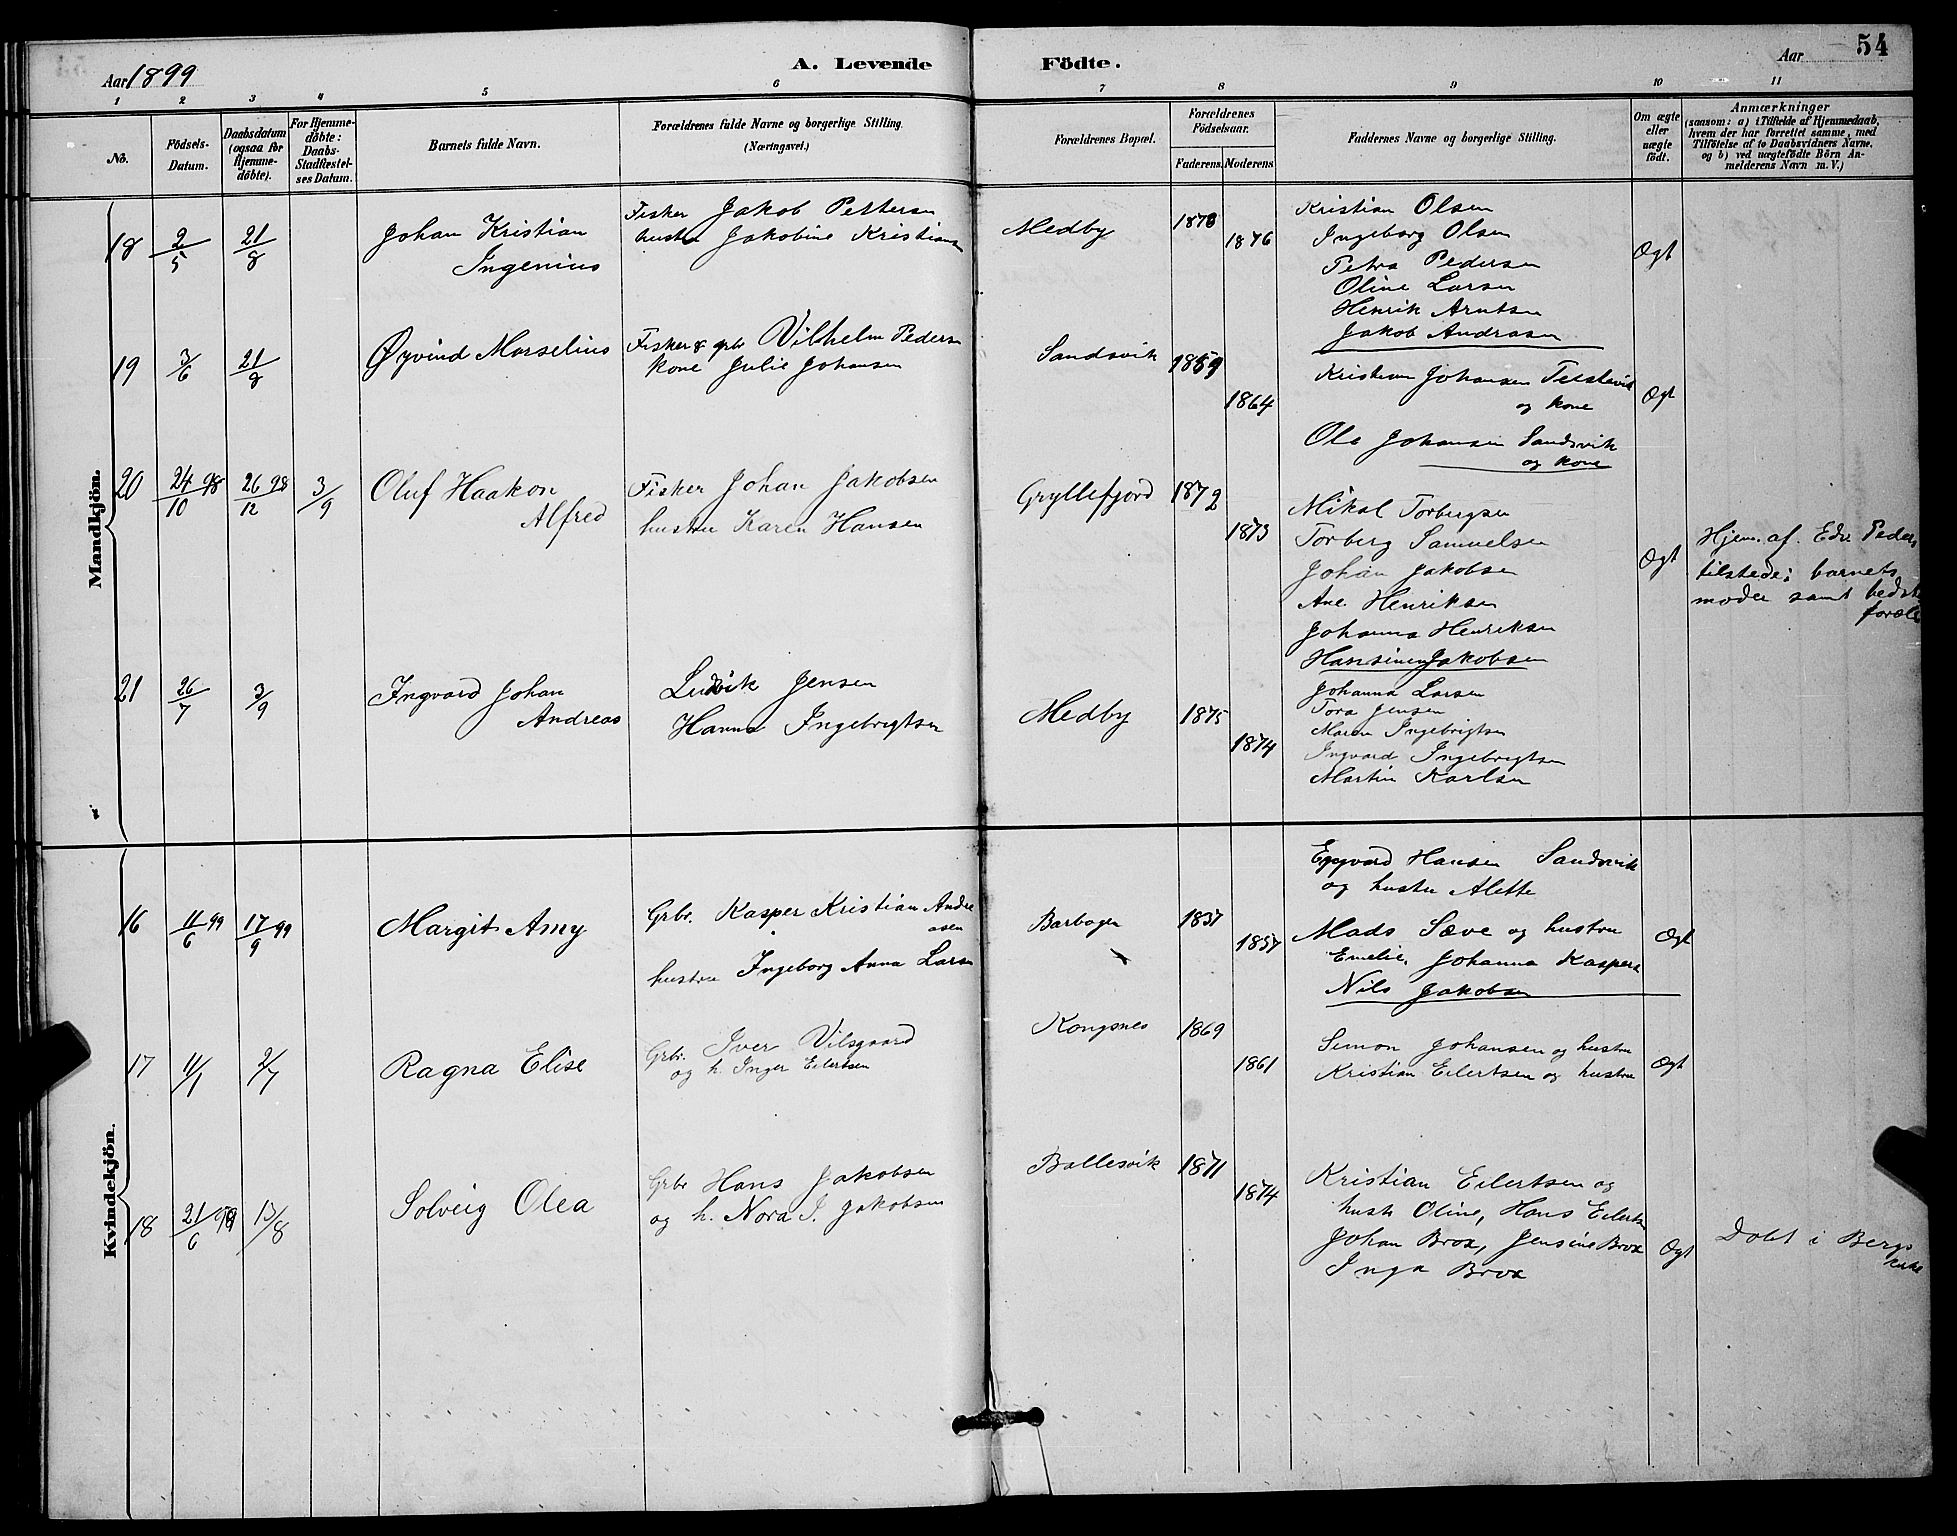 Aar 1899
A. Levende Födte.
Aar 54
1 2 3 4 5 6 7 8 9 10 11
No.
Födsels-Datum.
Daabsdatum (ogsaa for Hjemme-döbte).
For Hjemme-döbte: Daabs-Stadfæstel-ses Datum.
Barnets fulde Navn.
Forældrenes fulde Navne og borgerlige Stilling.
(Næringsvei.)
Forældrenes Bopæl.
Forældrenes Födselsaar.
Faderens. Moderens.
Faddernes Navne og borgerlige Stilling.
Om ægte eller uægte födt.
Anmærkninger
(saasom: a) i Tilfælde af Hjemmedaab, hvem der har forrettet samme, med Tilföielse af to Daabsvidners Navne, og b) ved uægtefödte Börn Anmelderens Navn m. V.)
Mandkjön.
18 2/5 21/8 Johan Kristian
Ingenius
Fisker Jakob Pettersen
hustru Jakobine Kristians
Medby 1878 1876
Kristian Olsen
Ingeborg Olsen
Petra Pedersen
Oline Larsen
Henrik Arntsen
Jakob Andrasen
Ægt
19 3/6 21/8 Øyvind Marselius
Fisker & grb Vilhelm Peders
kone Julie Johansen
Sandsvik 1859 1864
Kristian Johansen
og kone
Ole Johansen Sandsvik
og kone
Ægt
20 24/10 98 26/12 98 3/9 Oluf Haakon
Alfred
Fisker Johan Jakobsen
hustru Karen Hansen
Gryllefjord 1872 1873
Mikal Torbergsen
Torberg Samuelsen
Johan Jakobsen
Ane Henriksen
Johanna Henriksen
Hansine Jakobsen
Ægt
Hjem. af. Edv. Peders
tilstede: barnets
moder samt bedste
foræld
21 26/7 3/9 Ingvard Johan
Andreas
Ludvik Jensen
Hanna Ingebrigtsen
Medby 1875 1874
Johanna Larsen
Tora Jensen
Maren Ingebrigtsen
Ingvard Ingebrigtsen
Martin Karlsen
Kvindekjön.
16 11/6 99 17/9 99 Margit Amy
Grbr. Kasper Kristian Andre
asen
hustru Ingeborg Anna Larsen
Barbogen 1857 1857
Hansen Sandsvik
og hustru Alette
Mads Sæve og hustru
Emelie, Johanna Kaspers
Nils Jakobsen
Ægt
17 11/1 2/7 Ragna Elise
Grbr. Iver Vilsgaard
og h. Inger Eilertsen
Kongsnes 1869 1861
Simon Johansen og hustru
Kristian Eilertsen og hustru
Ægt
18 21/6 99 13/8 Solveig Olea
Grbr Hans Jakobsen
og h. Nora J. Jakobsen
Ballesvik 1871 1874
Kristian Eilertsen og
hustr Oline, Hans Eilerts
Johan Brox, Jensine Brox
Inga Brox
Ægt
Døbt i Bergs
kirke